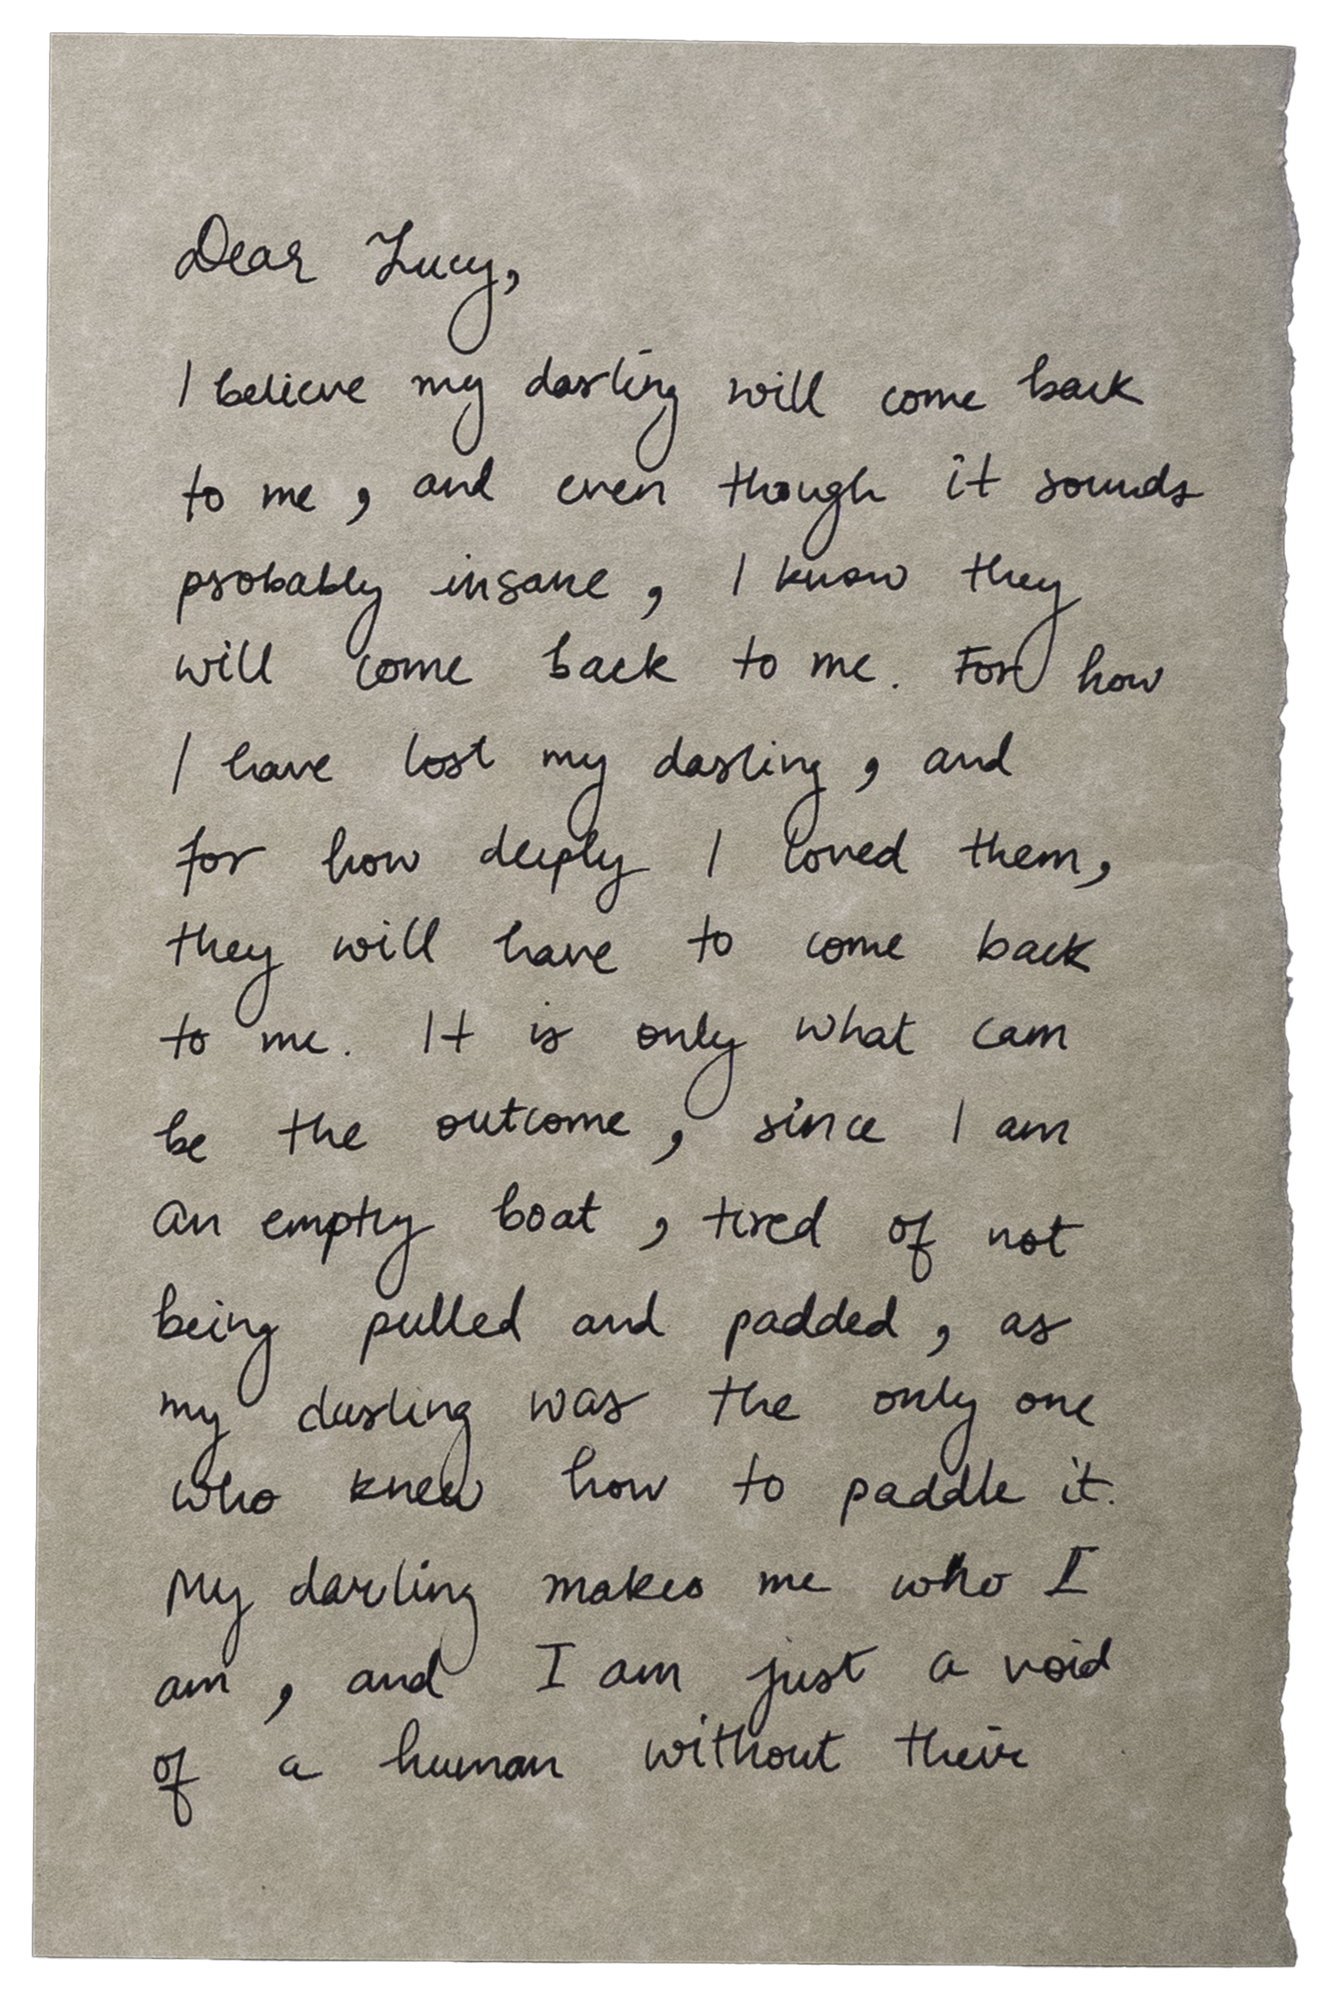 Dear Lucy,
I believe my darling will come back
to me, and even though it sounds
probably insane, I know they
will come back to me. For how
I have lost my darling, and
for how deeply I loved them,
they will have to come back
to me. It is only what can
be the outcome, since I am
an empty boat, tired of not
being pulled and padded, as
my darling was the only one
who knew how to paddle it.
My darling makes me who I
am, and I am just a void
of a human without their